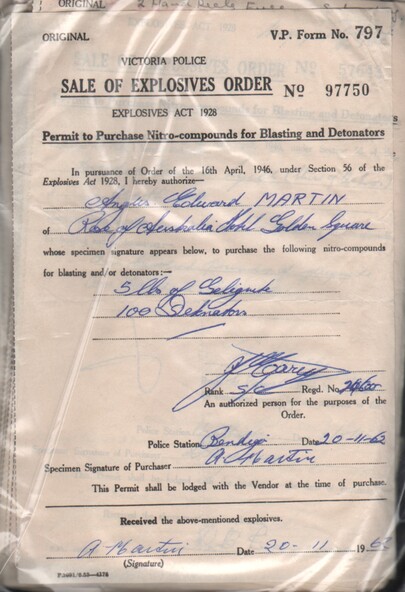 ORIGINAL
ORIGINAL
V.P. Form No. 797
VICTORIA POLICE
SALE OF EXPLOSIVES ORDER No 97750
EXPLOSIVES ACT 1928
Permit to Purchase Nitro-compounds for Blasting and Detonators
In pursuance of Order of the 16th April, 1946, under Section 56 of the
Explosives Act 1928, I hereby authorize—
Edward MARTIN
of Rose of Australia Hotel Golden Square
whose specimen signature appears below, to purchase the following nitro-compounds
for blasting and/or detonators:—
5 lbs of Gelignite
100 Detonators
Rank S/C Regd. No.
An authorized person for the purposes of the
Order.
Police Station Bendigo Date 20-11-62
Specimen Signature of Purchaser A Martin
This Permit shall be lodged with the Vendor at the time of purchase.
Received the above-mentioned explosives.
A Martin Date 20-11 1962
(Signature)